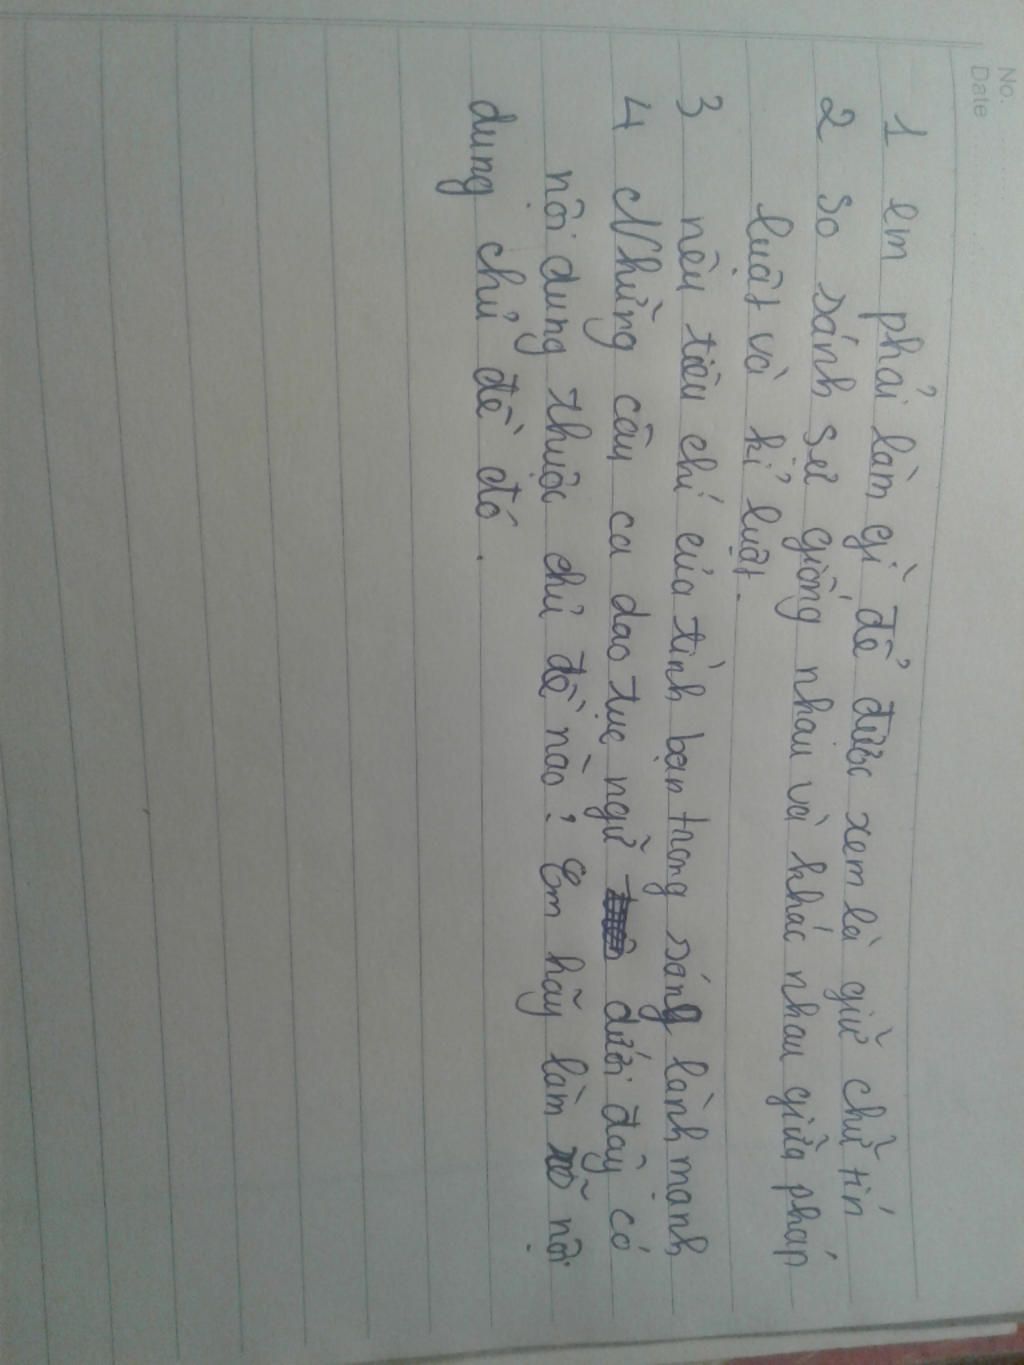 No.
Date
1 em phải làm gì để được xem là giữ chữ tín
2 so sánh sự giống nhau và khác nhau giữa pháp
luật và kỉ luật.
3 nêu tiêu chí của tình bạn trong sáng lành mạnh
4 Những câu ca dao tục ngữ dưới đây có
nội dung thuộc chủ đề nào? Em hãy làm rõ nội
dung chủ đề đó.